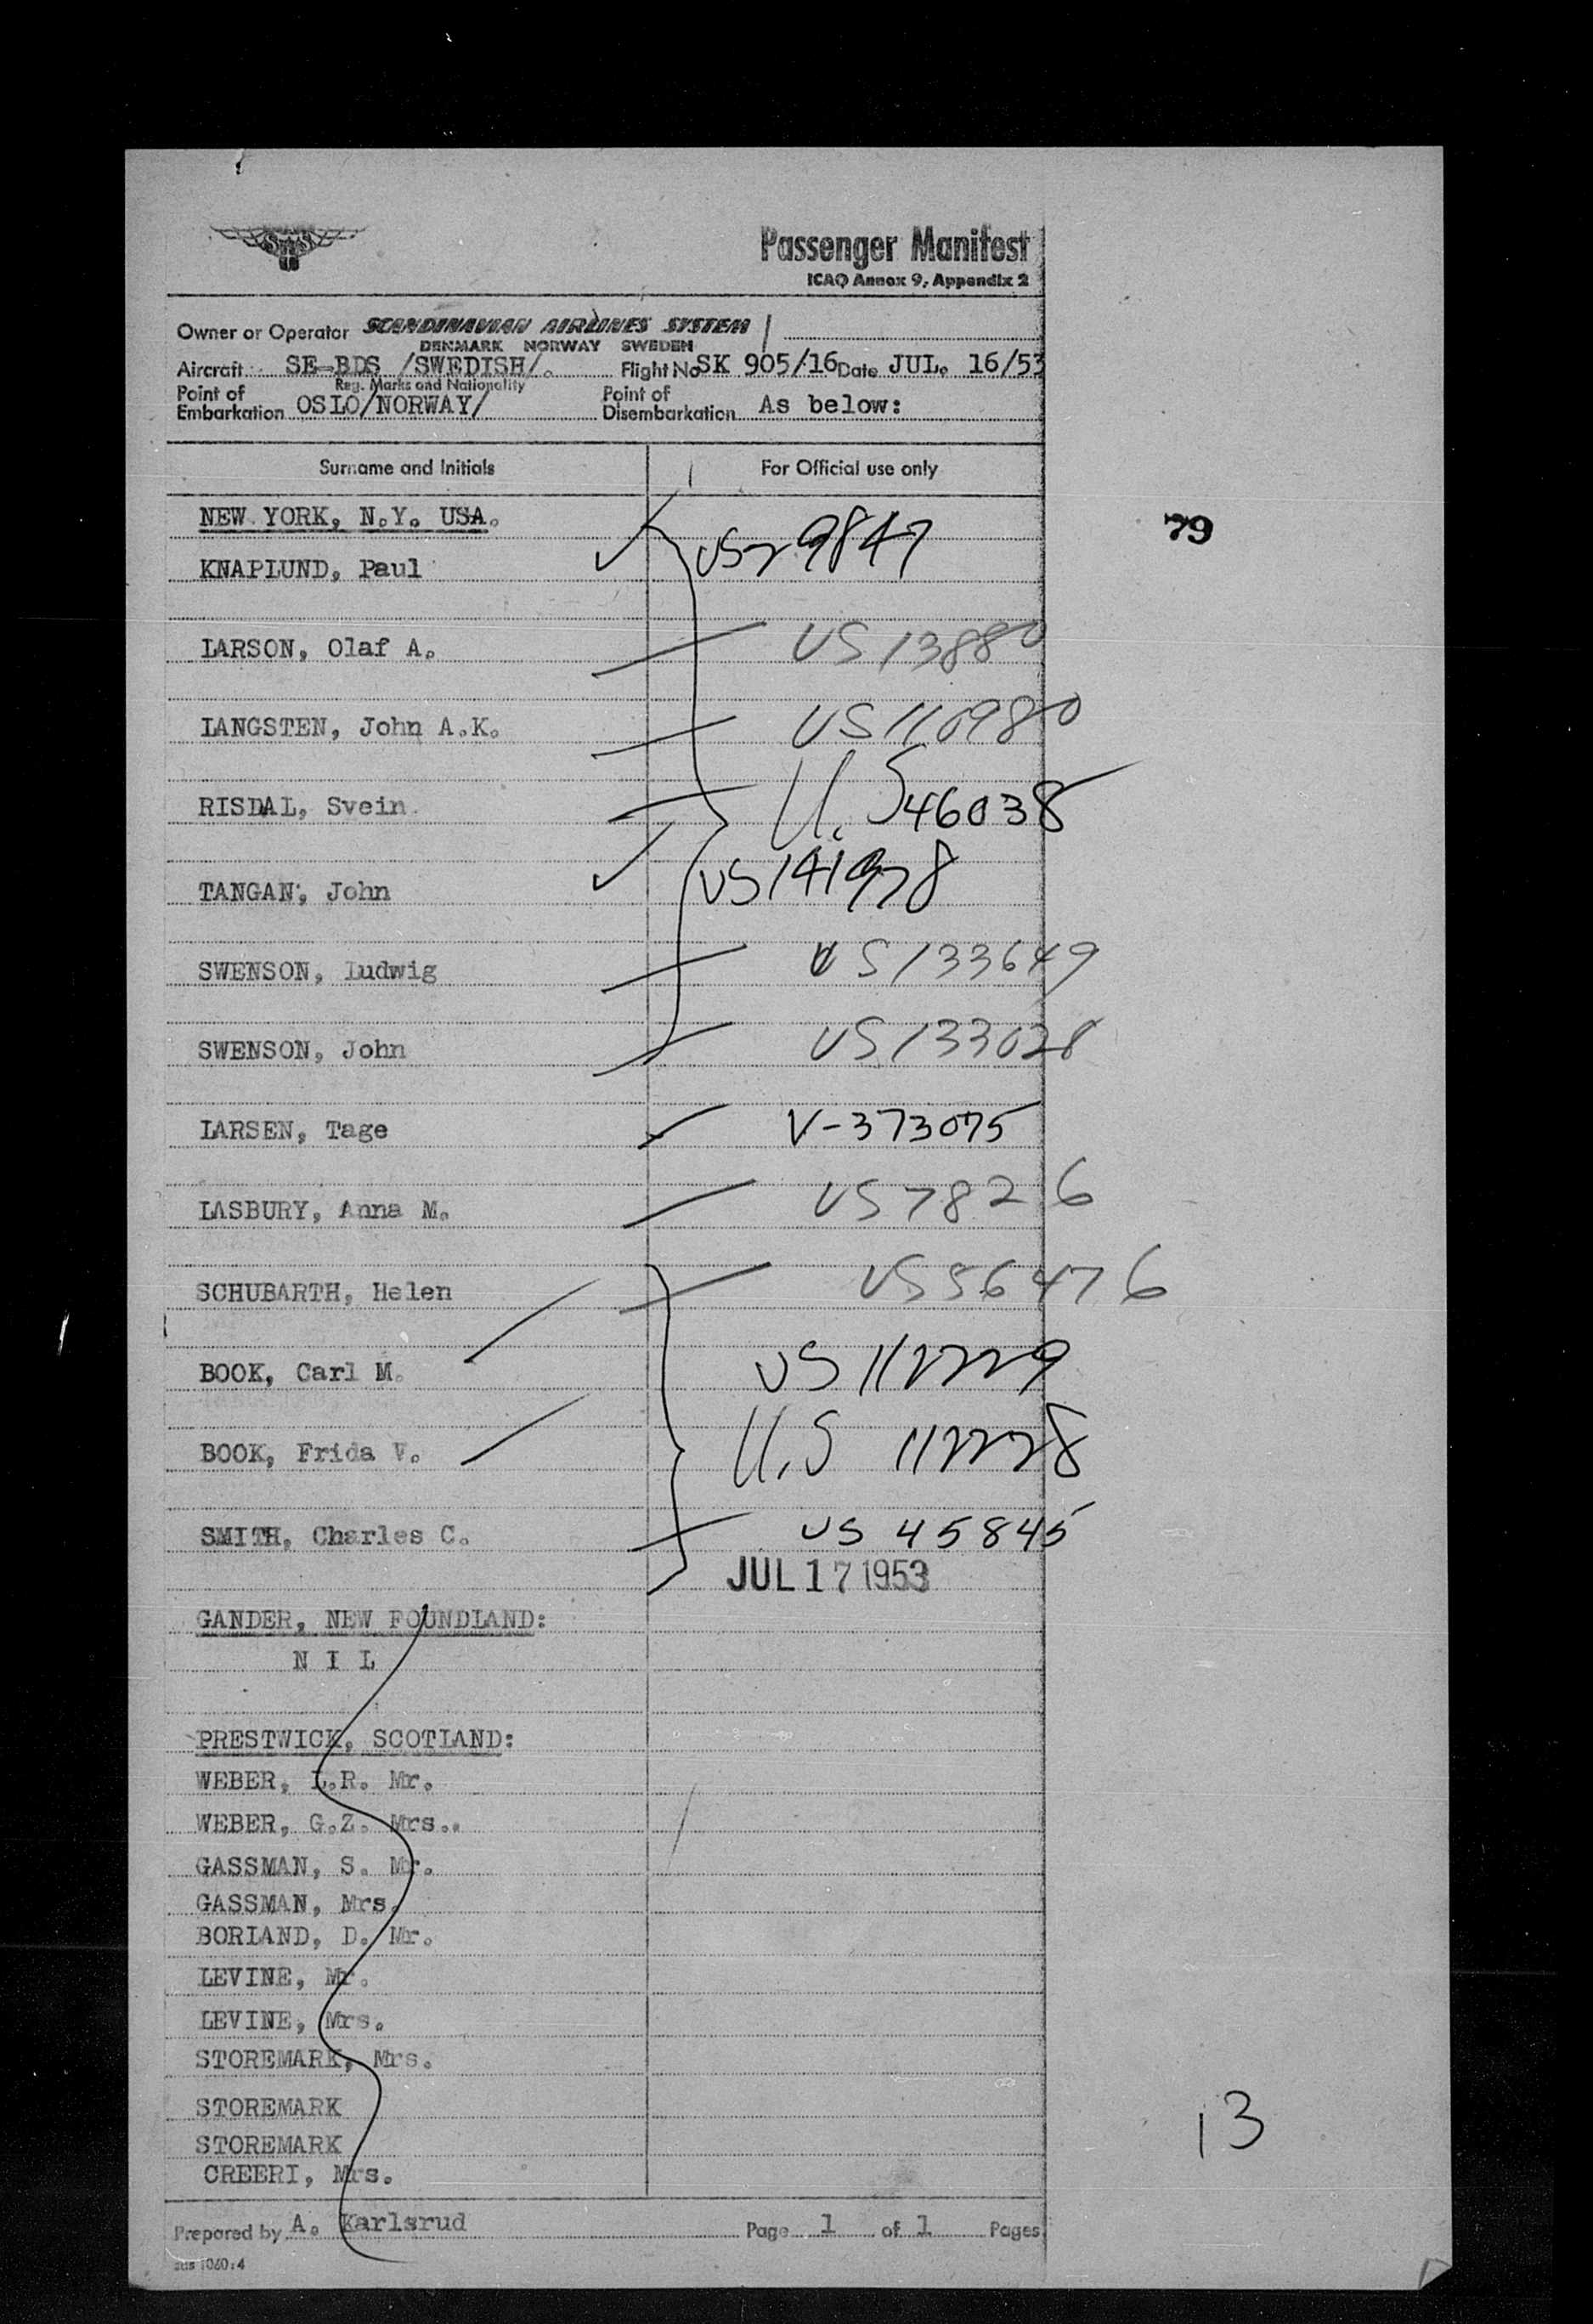 SAS
Passenger Manifest
ICAO Annex 9, Appendix 2
Owner or Operator SCANDINAVIAN AIRLINES SYSTEM
DENMARK NORWAY SWEDEN
Aircraft SE-BDS /SWEDISH/. Flight No SK 905/16 Date JUL. 16/53
Reg. Marks and Nationality
Point of Embarkation OSLO/NORWAY/ Point of Disembarkation As below:
Surname and Initials For Official use only
NEW YORK, N.Y. USA.
79
KNAPLUND, Paul US29847
LARSON, Olaf A. US13880
LANGSTEN, John A.K. US110980
RISDAL, Svein U.S 46038
TANGAN, John US141978
SWENSON, Ludwig US133649
SWENSON, John US133028
LARSEN, Tage V-373075
LASBURY, Anna M. US7826
SCHUBARTH, Helen US56476
BOOK, Carl M. US112229
BOOK, Frida V. U.S 112228
SMITH, Charles C. US 45845
JUL 17 1953
GANDER, NEW FOUNDLAND:
N I L
PRESTWICK, SCOTLAND:
WEBER, L.R. Mr.
WEBER, G.Z. Mrs..
GASSMAN, S. Mr.
GASSMAN, Mrs.
BORLAND, D. Mr.
LEVINE, Mr.
LEVINE, Mrs.
STOREMARK, Mrs.
STOREMARK
13
STOREMARK
CREERI, Mrs.
Prepared by A. Karlsrud Page 1 of 1 Pages